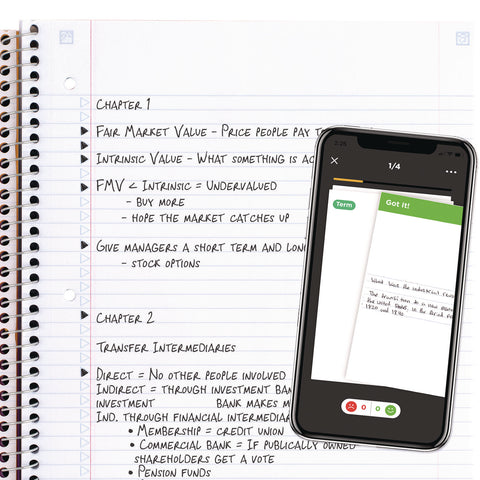 CHAPTER 1
FAIR MARKET VALUE - PRICE PEOPLE PAY
INTRINSIC VALUE - WHAT SOMETHING IS
FMV < INTRINSIC = UNDERVALUED
- BUY MORE
- HOPE THE MARKET CATCHES UP
GIVE MANAGERS A SHORT TERM AND
- STOCK OPTIONS
CHAPTER 2
TRANSFER INTERMEDIARIES
DIRECT = NO OTHER PEOPLE INVOLVED
INDIRECT = THROUGH INVESTMENT
INVESTMENT BANK MAKES
IND. THROUGH FINANCIAL
• MEMBERSHIP = CREDIT UNION
• COMMERCIAL BANK = IF PUBLICALLY OWNED
SHAREHOLDERS GET A VOTE
• PENSION FUNDS
2:26
1/4
Term
Got It!
What was the industrial
The transition to a new
the United States, in the
1820 and 1840
0 0